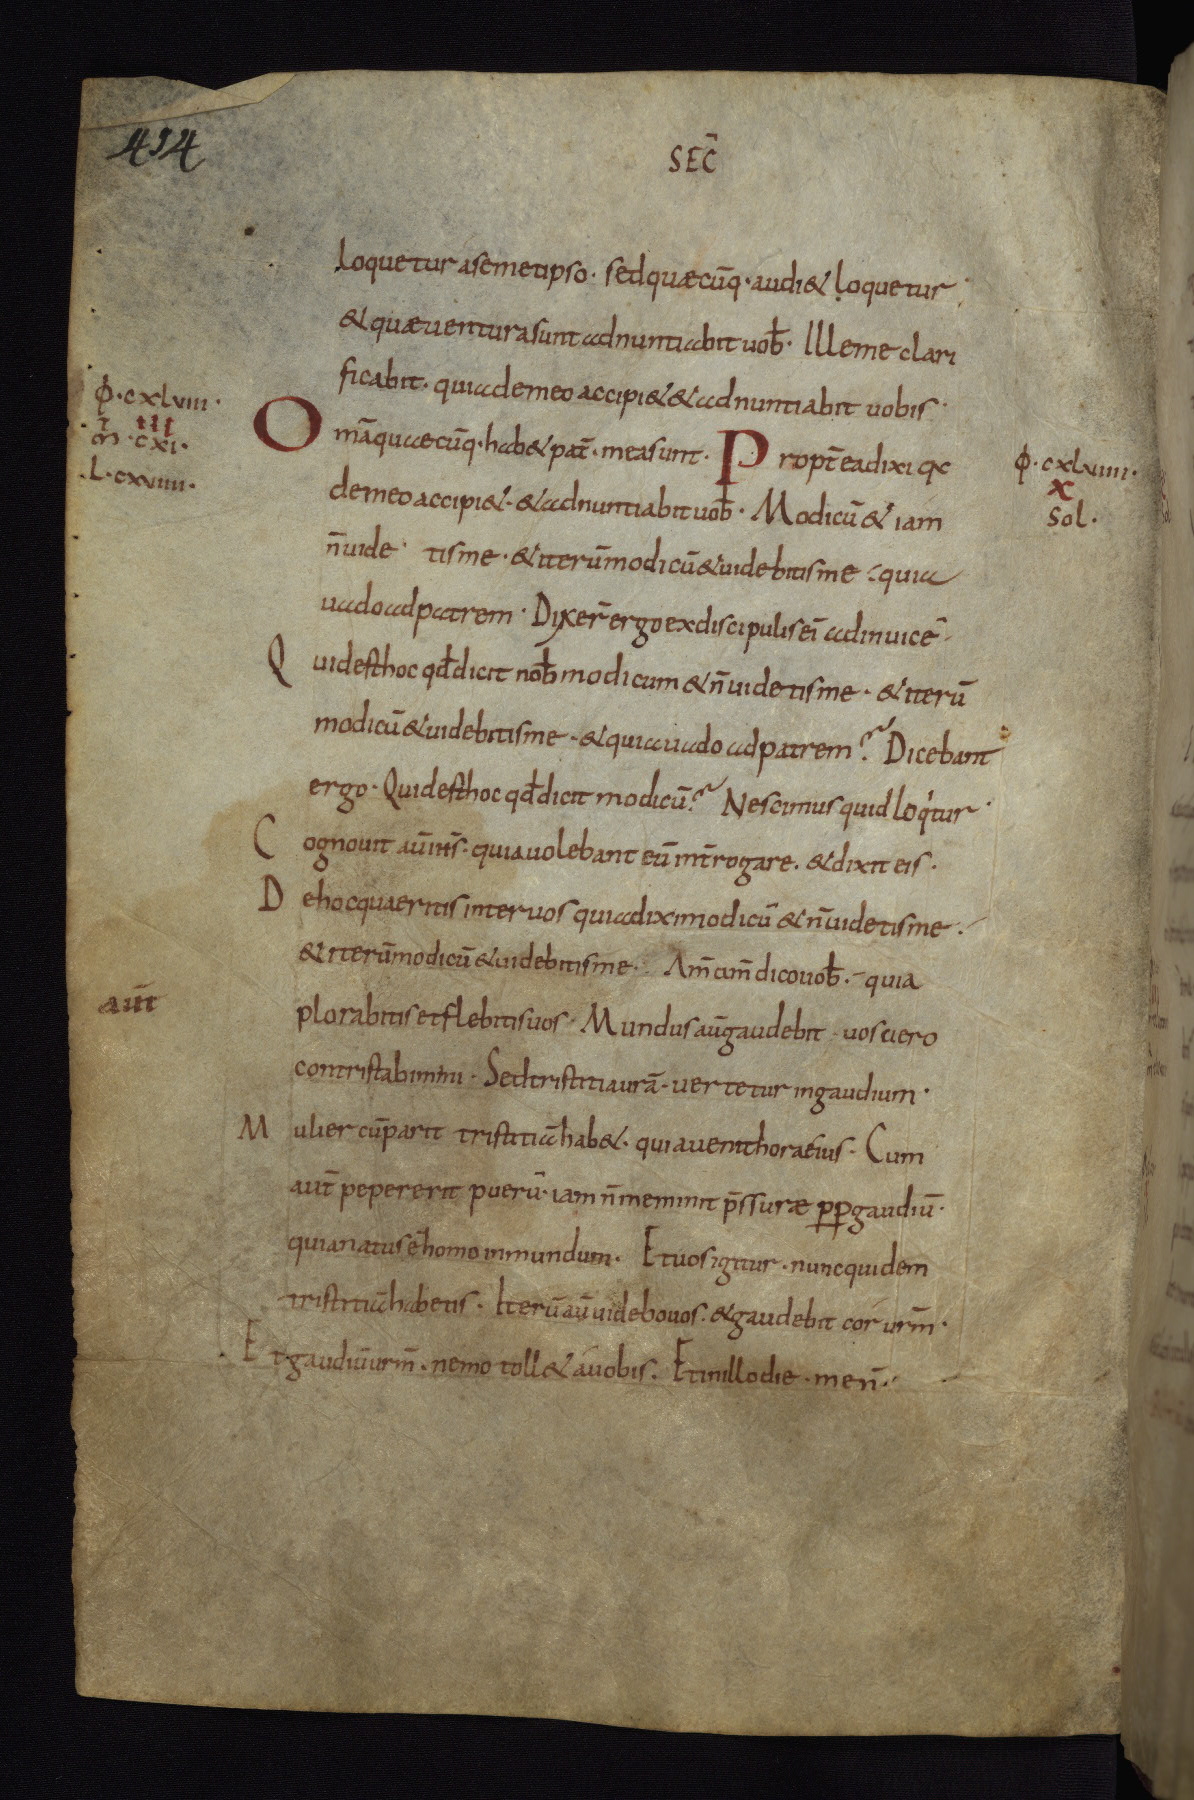 434
SEC̄
loquetur asemetipso · sed quæcūq · audi& loquetur
& quæ uentura sunt adnuntiabit uob̄ · Ille me clari
ficabit · quia de meo accipi& & adnuntiabit uobis ·
ϕ · cxlviii ·
iii
m̄ · cxi ·
L · cxviiii ·
Omā quæcūq · hab& pat̄ · mea sunt · Propt̄ea dixi qa
ϕ · cxlviiii ·
x
sol ·
de meo accipi& · & adnuntiabit uob̄ · Modicū & iam
n̄ uide tis me · & iterū modicū & uidebitis me · quia
uado ad patrem · Dixer̄ ergo ex discipulis ei adinuicē ·
Quid est hoc qd̄ dicit nob̄ modicum & n̄ uidetis me · & iterū
modicū & uidebitis me · & quia uado ad patrem? Dicebant
ergo · Quid est hoc qd̄ dicit modicū? Nescimus quid loqtur ·
Cognouit aū ih̄s · quia uolebant eū int̄rogare · & dixit eis ·
De hoc quaeritis inter uos quia dixi modicū & n̄ uidetis me ·
& iterū modicū & uidebitis me · Am̄ am̄ dico uob̄ · quia
aut̄
plorabitis et flebitis uos · Mundus aū gaudebit · uos uero
contristabimini · Sed tristitia urā · uertetur in gaudium ·
Mulier cū parit tristitiā hab& · quia uenit hora eius · Cum
aut̄ pepererit puerū · iam n̄ meminit p̄ssuræ pp gaudiū ·
quia natus ē homo in mundum · Et uos igitur · nunc quidem
tristitiā habetis · Iterū aū uidebo uos · & gaudebit cor urm̄ ·
Et gaudiū urm̄ · nemo toll& a uobis · Et in illo die · me n̄ ·